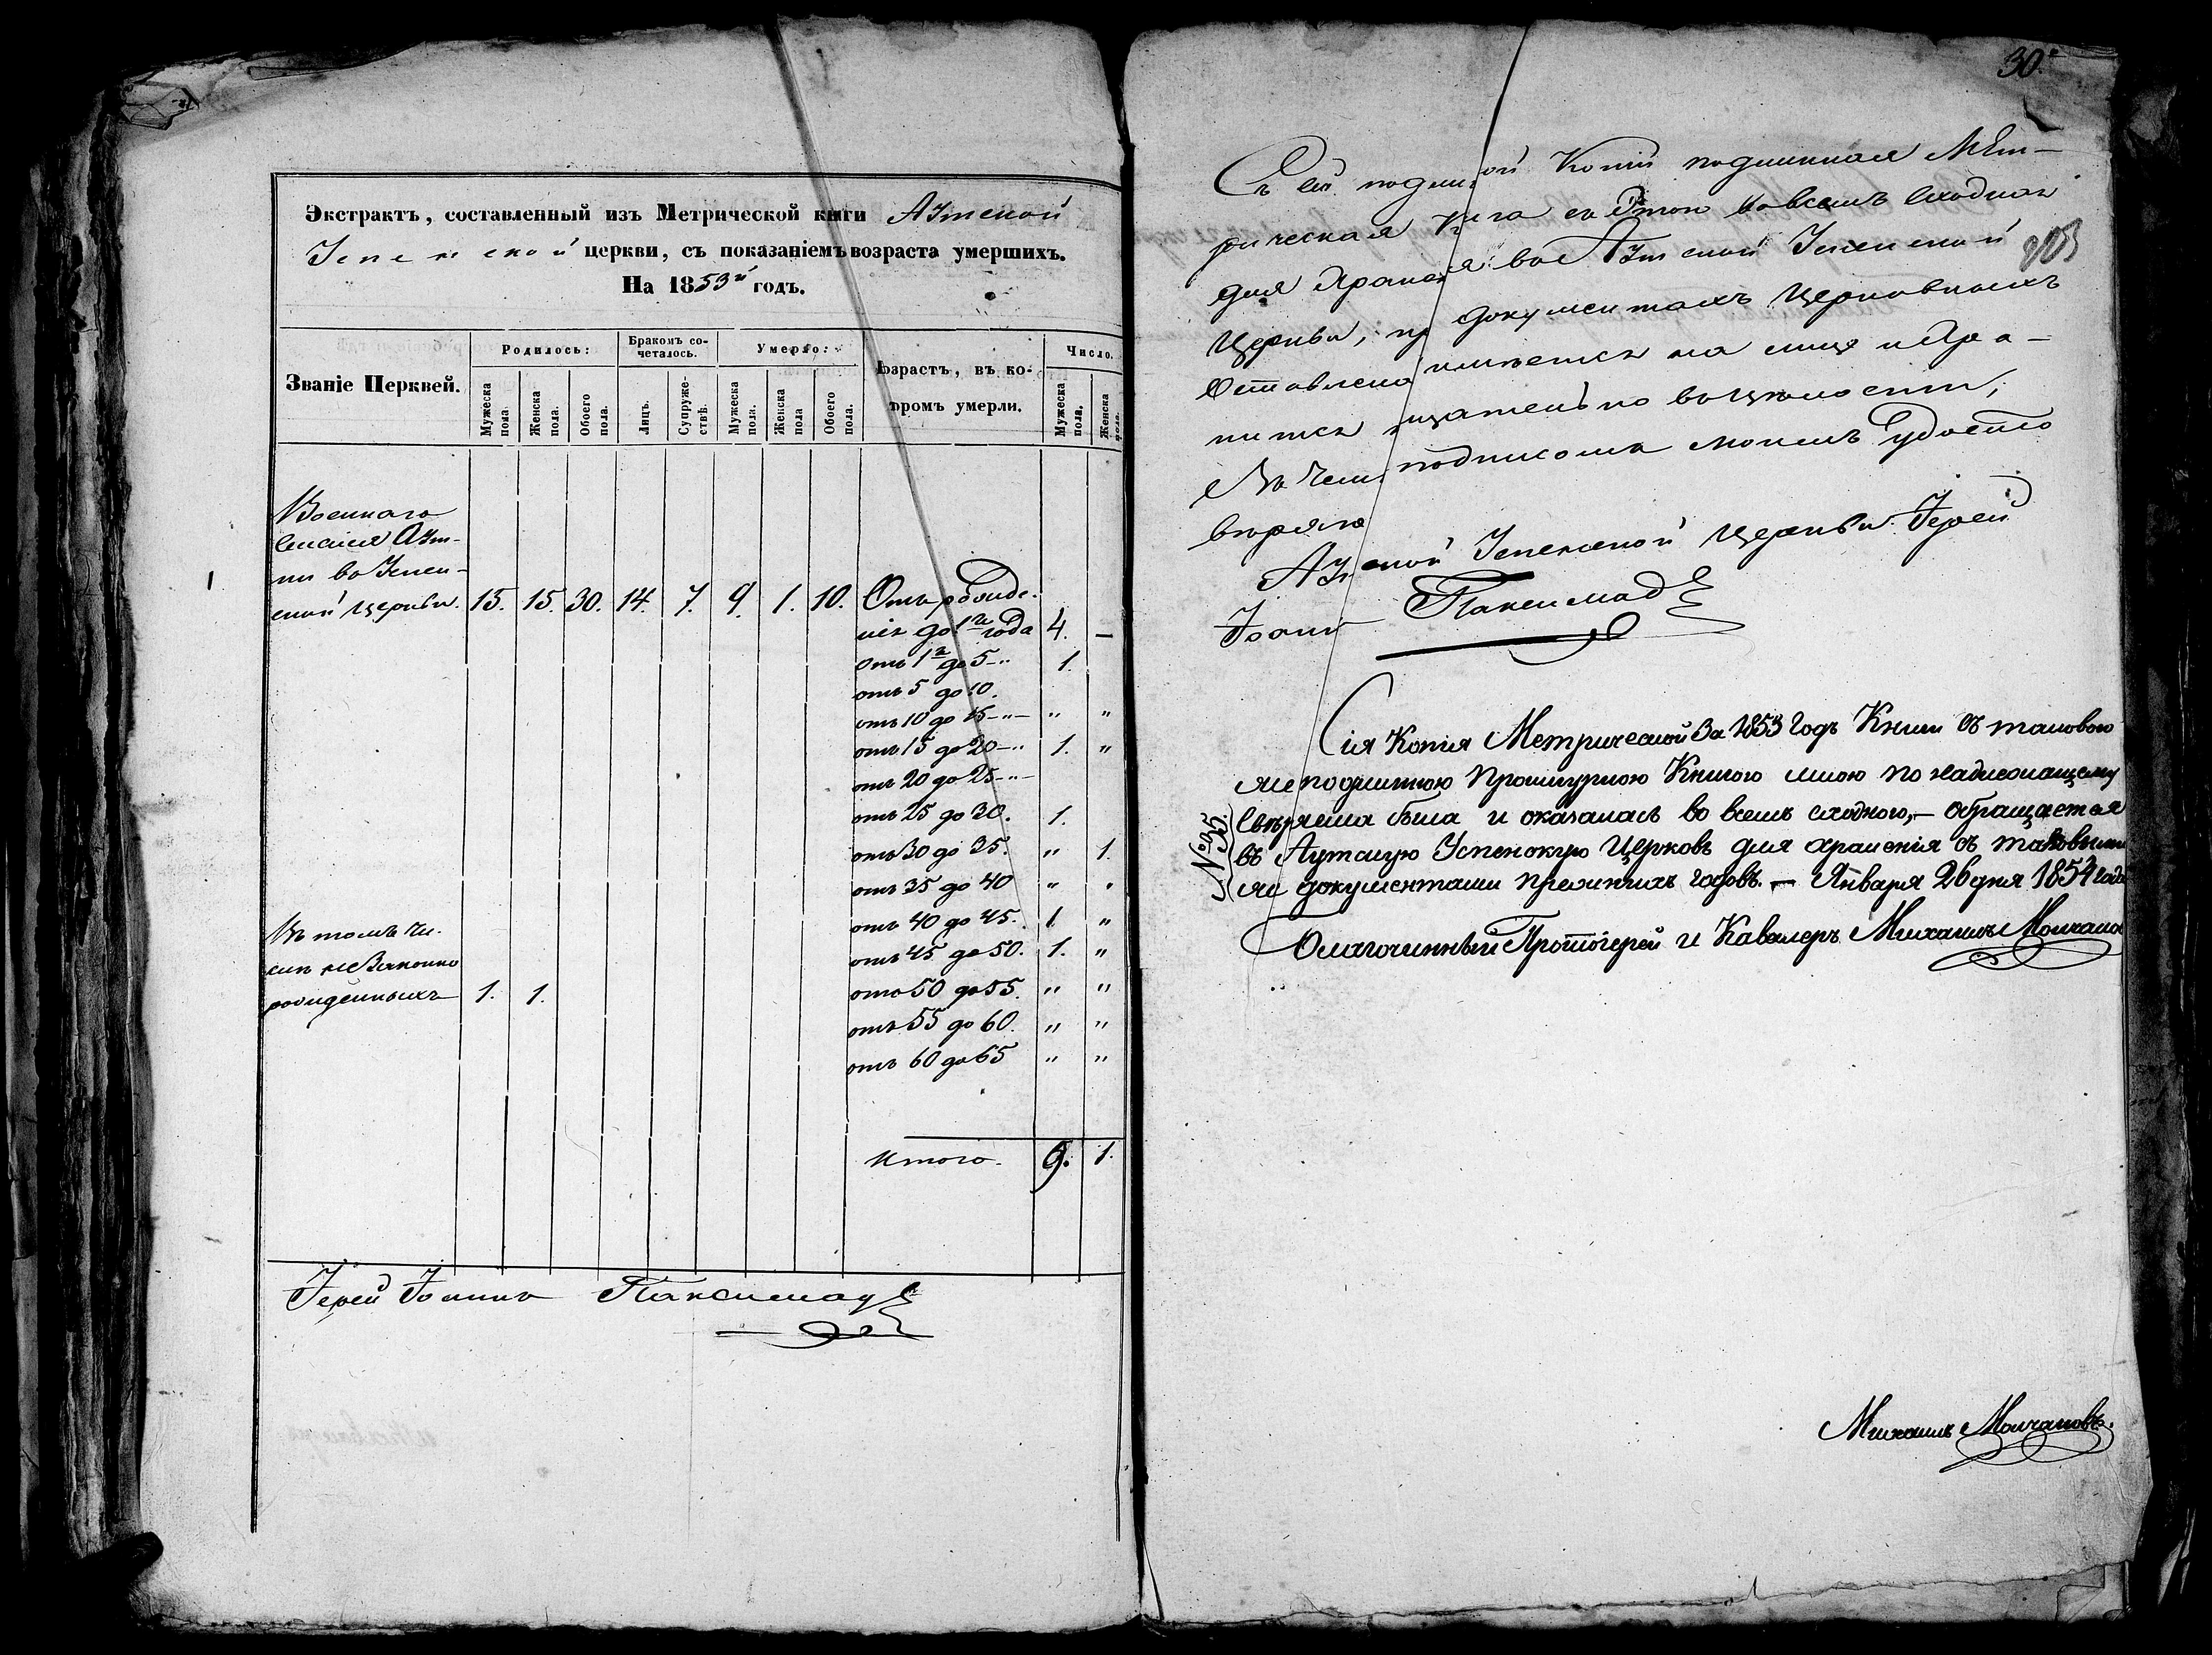 Экстрактъ, составленный изъ Метрической книги Аутской
Успенской церкви, съ показаніемъ возраста умершихъ.
На 1853й годъ.
Званіе Церквей.
Родилось:
Бракомъ со-
четалось.
Умерло:
Возрастъ, въ ко-
торомъ умерли.
Число.
Мужеска пола.
Женска пола.
Обоего пола.
Лицъ.
Супруже-
ствъ.
Мужеска пола.
Женска пола
Обоего пола.
Мужеска пола.
Женска пола.
Военнаго
селенія Аут-
ки въ Успен-
ской церкви. 15. 15. 30. 14. 7. 9. 1. 10. Отъ рожде-
нія до 1го года 4. —
отъ 1го до 5 —„ 1.
отъ 5 до 10.
отъ 10 до 15 —„— „ „
отъ 15 до 20 —„ 1. „
отъ 20 до 25 —„—
отъ 25 до 30. 1.
отъ 30 до 35. „ 1.
отъ 35 до 40 „ „
отъ 40 до 45. 1 „
отъ 45 до 50. 1. „
отъ 50 до 55. „ „
отъ 55 до 60. „ „
отъ 60 до 65 „ „
Въ томъ чи-
слѣ незаконно
рожденныхъ 1. 1.
Итого. 9. 1.
Іерей Іоаннъ Паксимадѣ
30.
903
Съ сей подлиной Копіи подлинная Мет-
рическая книга съ этою вовсемъ сходная
для храненія во Аутской Успенской
Церкви, при документахъ Церковныхъ
Оставлена имѣется на лице и хра-
нится тщательно въ цѣлости;
Въ чемъ подписомъ моимъ удосто
вѣряю
Аутской Успенской Церкви Іерей
Іоаннъ Паксимадѣ
Сія Копія Метрической За 1853 Годъ Книги съ таковою
же подлинною Прошнурною Книгою мною по надлежащему
Свѣряема была и оказалась во всемъ сходною, — обращается
въ Аутскую Успенскую Церковь для храненія съ таковыми
же документами прежнихъ годовъ. — Января 26 дня 1854 года
№ 35.
Благочинный Протоіерей и Кавалеръ Михаилъ Молчановъ
Михаилъ Молчановъ.